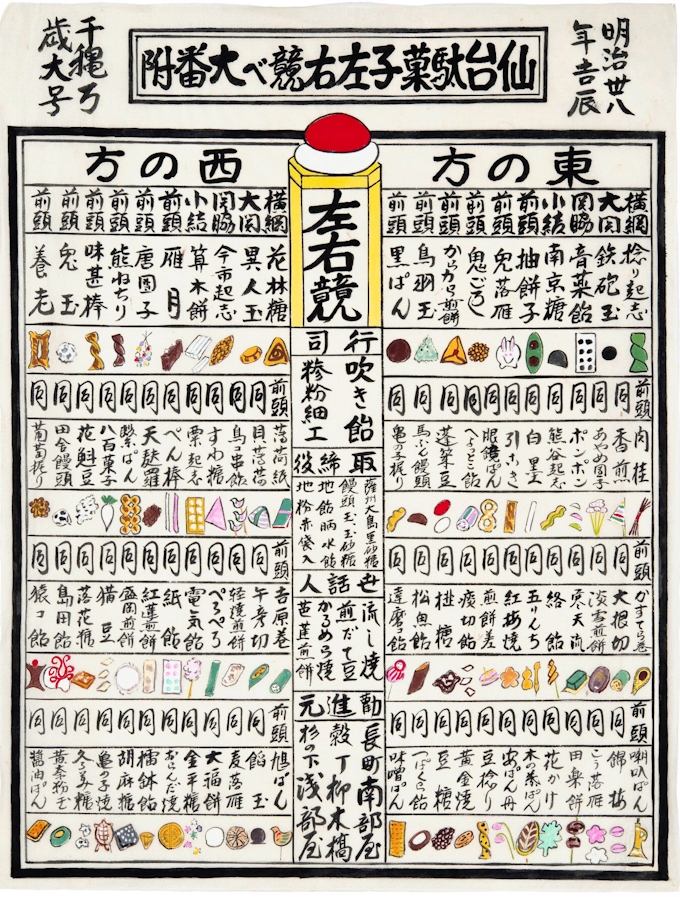 明治卅八
年吉辰
仙台駄菓子左右競べ大番附
千穐万
歳大号
東の方
横綱 捻り起志
大関 鉄砲玉
関脇 音薬飴
小結 南京糖
前頭 柚餅子
前頭 兎落雁
前頭 鬼ごろし
前頭 からから煎餅
前頭 鳥羽玉
前頭 黒ぱん
前頭 肉桂
同 香煎
同 あやめ団子
同 ポンポン
同 熊谷起志
同 白黒玉
同
同 眼鏡ぱん
同
同 蓬莱豆
同 馬ふん饅頭
同 亀の子捻り
前頭 かすてら巻
同 大根切
同 淡雪煎餅
同 寒天流
同 絡飴
同 五りんち
同 紅梅焼
同 煎餅差
同 痰切飴
同 桃糖
同 松魚飴
同 達磨コ飴
前頭 喇叭ぱん
同 錦梅
同 こう落雁
同 田楽餅
同 花かけ
同 木の葉ぱん
同 安ぱん丹
同 豆捻り
同 黄金焼
同 糖豆
同 つばくら飴
同 味噌ぱん
左右競
行司
吹き飴
糝粉細工
取締役
薩州大島黒砂糖
饅頭玉玉砂糖
地飴晒水飴
地粉赤袋入
世話人
流し焼
煎だて豆
かるめら焼
芭蓮煎餅
勧進元
長町南部屋
穀丁柳木橋
杉の下浅部屋
西の方
横綱 花林糖
大関 異人玉
関脇 今市起志
小結 算木餅
前頭 雁月
前頭 唐団子
前頭 熊ねちり
前頭 味甚棒
前頭 兎玉
前頭 養老
前頭 薄荷紙
同 貝薄荷
同 鳥コ串飴
同 すわ糖
同 栗起志
同 ぺん棒
同 天麩羅
同 繋ぱん
同 八百菓子
同 花魁豆
同 田舎饅頭
同 葡萄捩り
前頭 吉原巻
同 午房切
同 軽焼煎餅
同 ぺろぺろ
同 電気飴
同 紙飴
同 紅蓮煎餅
同 盛岡煎餅
同 猫豆
同 落花糖
同 島田飴
同 猿コ飴
前頭 旭ぱん
同 飴玉
同 麦落雁
同 大福餅
同 金平糖
同 おらんだ焼
同 擂鉢飴
同 胡麻糖
同 亀の子焼
同 冬美糖
同 黄奈粉玉
同 醤油ぱん